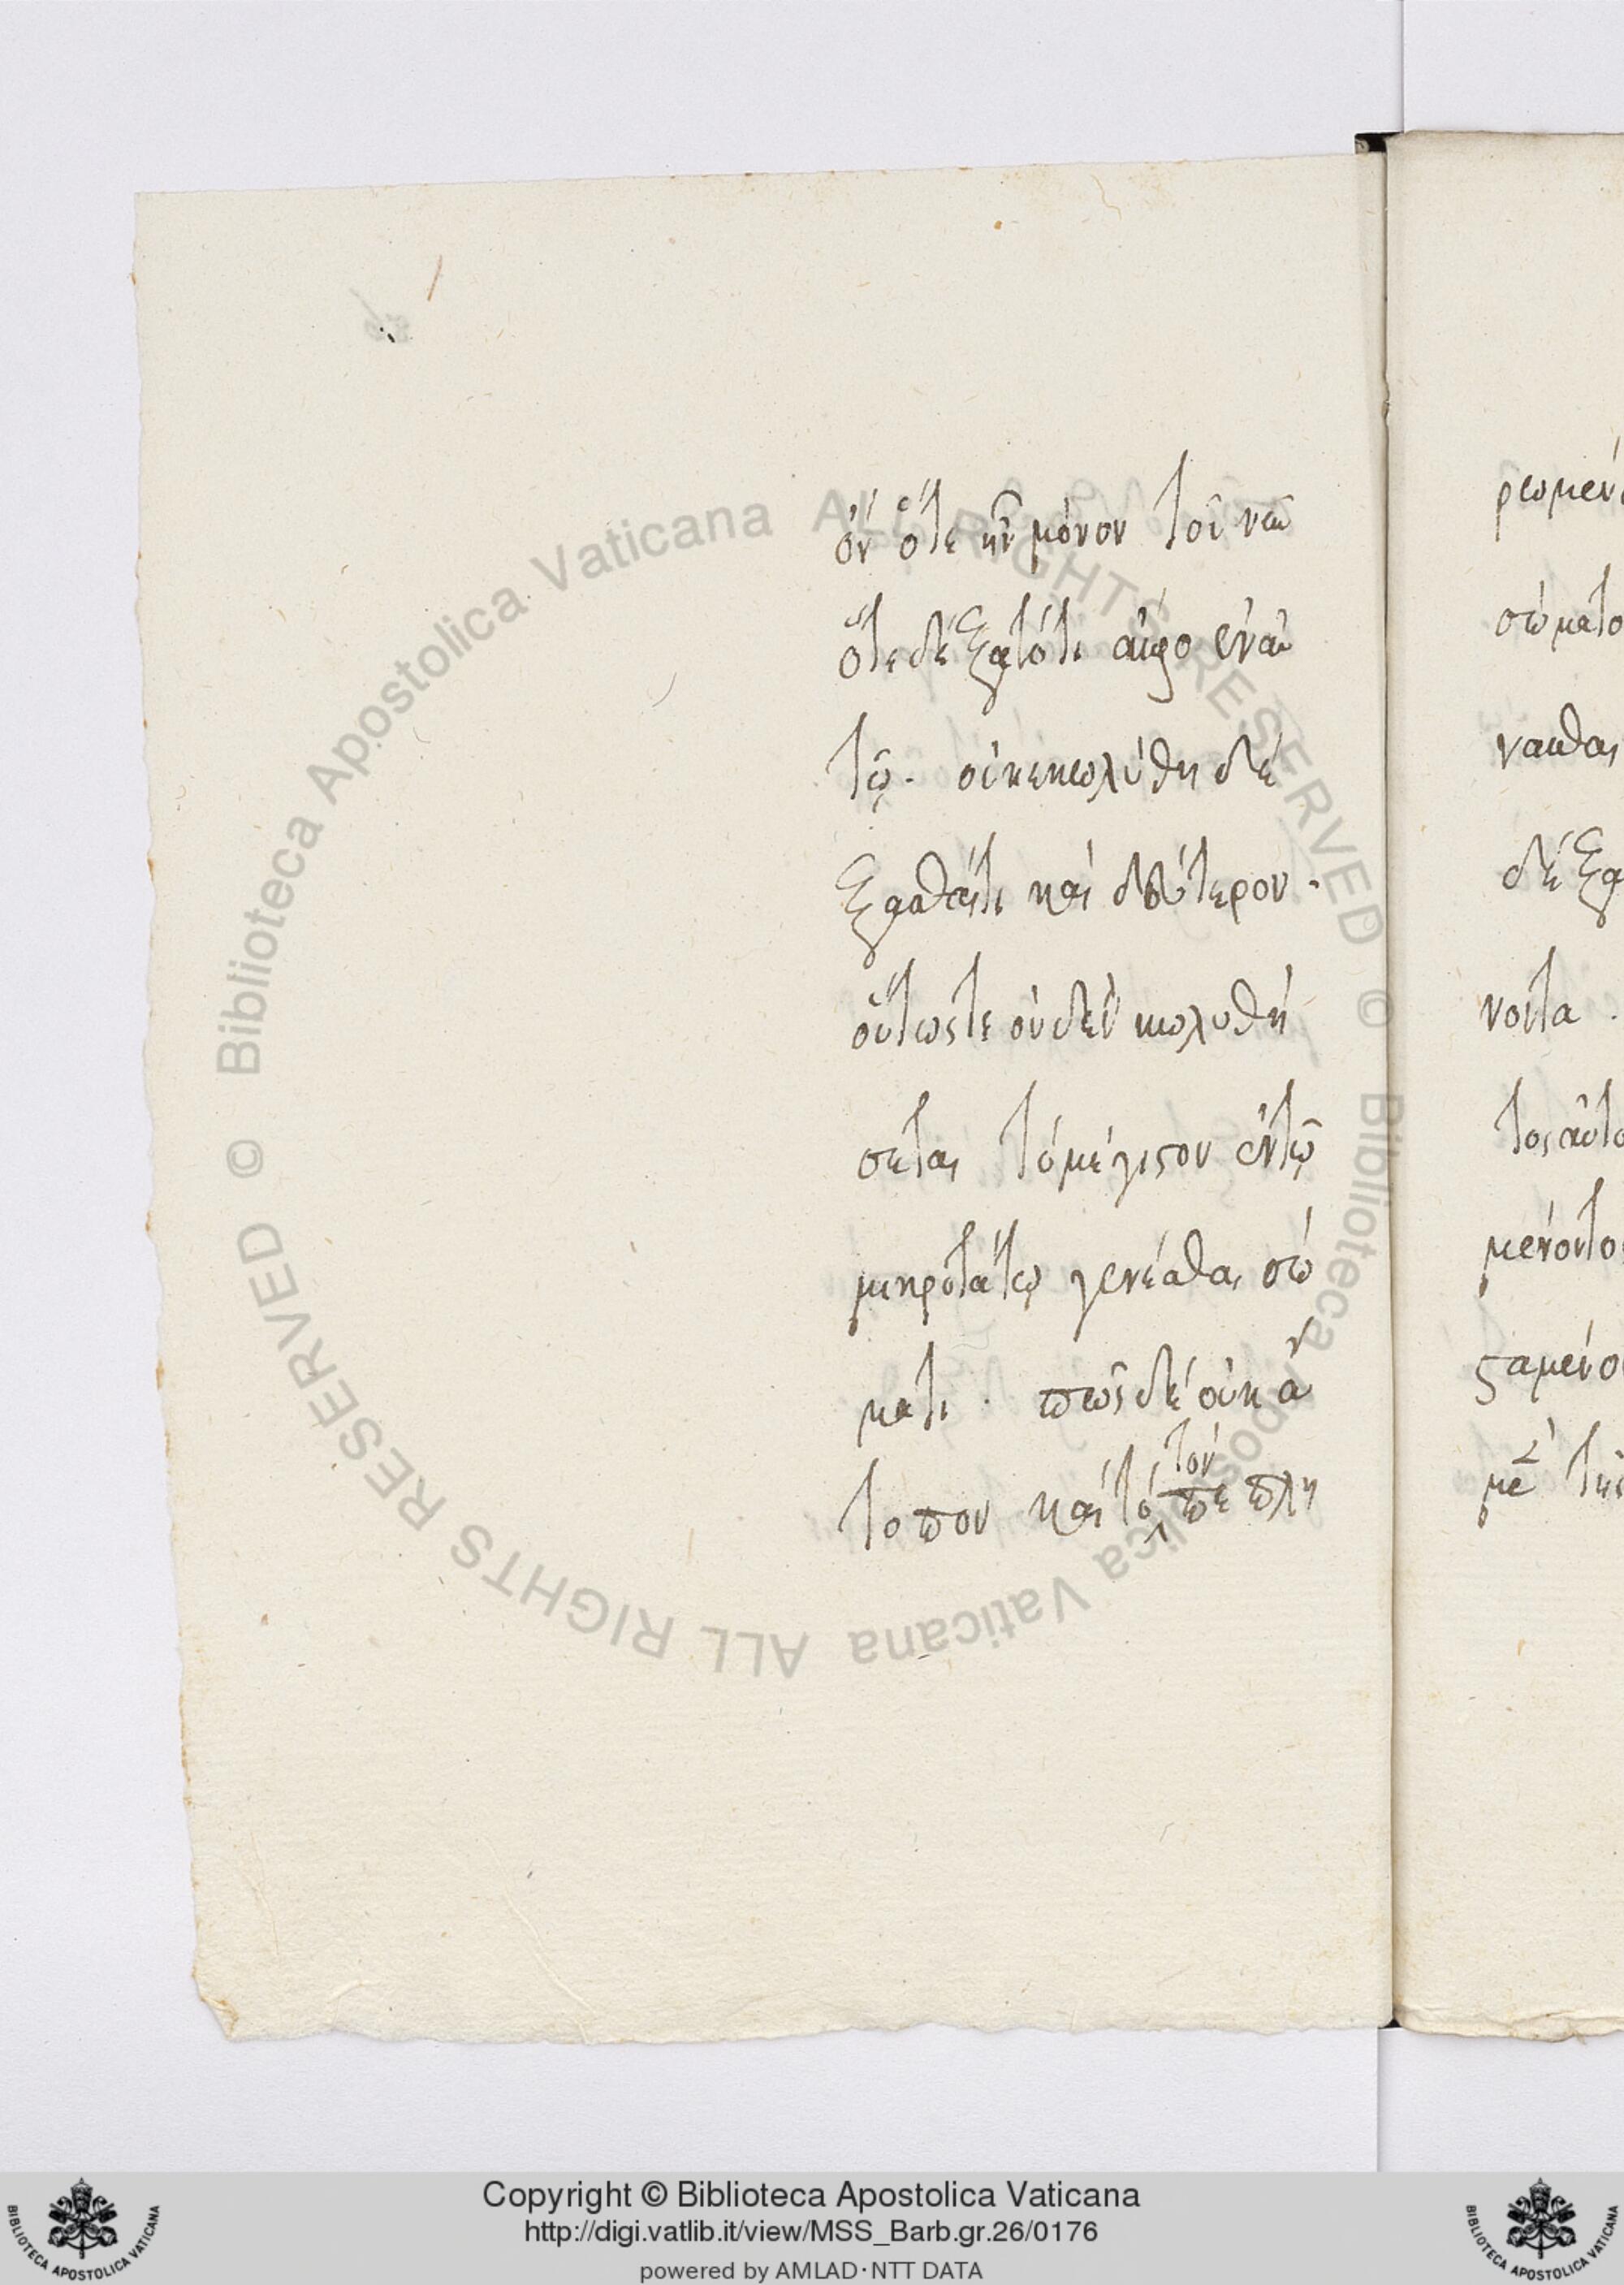 ὸν ὅτε ἦν μόνον τοῖ νεω
ὅτε δέξατό τι αὐφο ἐναυ
τῷ. οὐκ ἐκωλύθη δέ
ξασθαί τι καὶ δεύτερον.
οὕτως τε οὐδὲν κωλυθή
σεται τὸ μέγιστον ἐν τῷ
μικροτάτῳ γενέσθαι σώ
ματι. πῶς δὲ οὐκ ἄ
τοπον καὶ τὸ τὸν πεπλη
ρωμεν
σώματο
νασθαι
δέξα
νοντα.
τος αὐτο
μένοντο
ξαμένο
με τῆς
© Biblioteca Apostolica Vaticana ALL RIGHTS RESERVED © Biblioteca Apostolica Vaticana ALL RIGHTS RESERVED
Copyright © Biblioteca Apostolica Vaticana
http://digi.vatlib.it/view/MSS_Barb.gr.26/0176
powered by AMLAD·NTT DATA
BIBLIOTECA APOSTOLICA VATICANA
BIBLIOTECA APOSTOLICA VATICANA